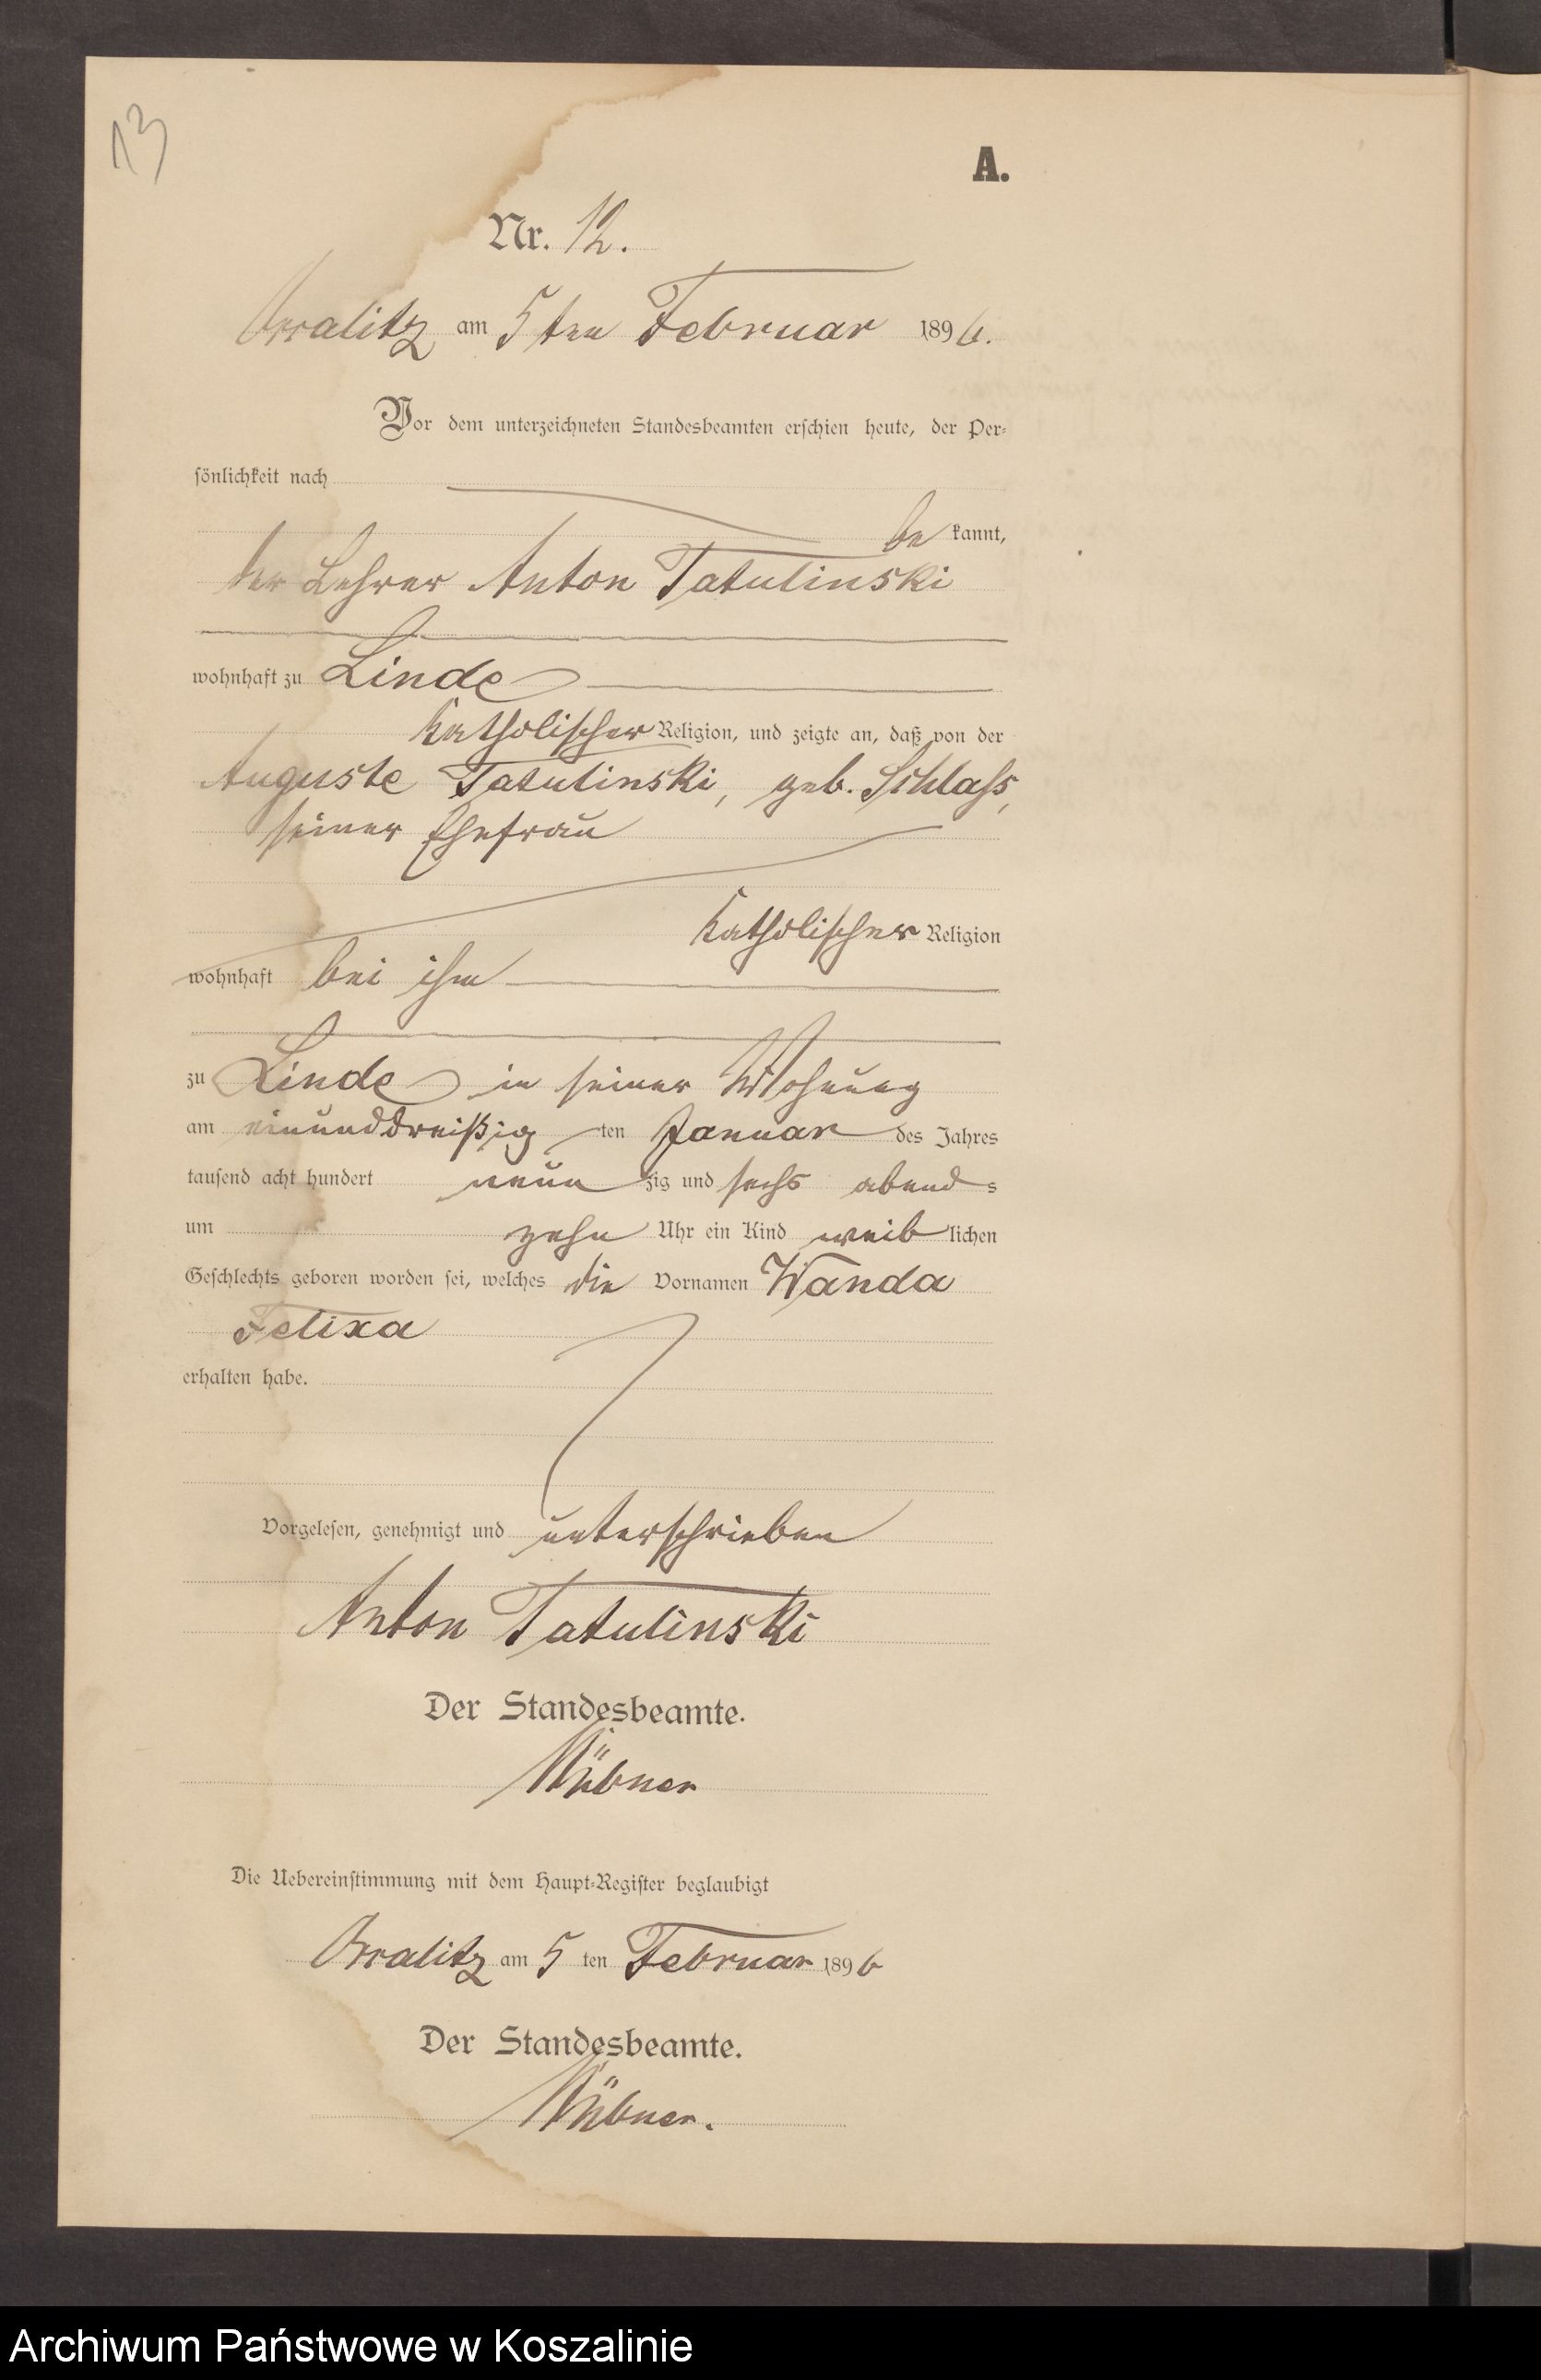 13
A.
Nr. 12.
am 5ten Februar 1896.
Vor dem unterzeichneten Standesbeamten erschien heute, der Per-
sönlichkeit nach
be kannt,
der Lehrer Anton Tatulinski
wohnhaft zu Linde
katholischer Religion, und zeigte an, daß von der
Auguste Tatulinski, geb. Schlass,
seiner Ehefrau
katholischer Religion
wohnhaft bei ihm
zu Linde in seiner Wohnung
am einunddreißig ten Januar des Jahres
tausend acht hundert neun zig und sechs abends
um zehn Uhr ein Kind weib lichen
Geschlechts geboren worden sei, welches die Vornamen Wanda
Felixa
erhalten habe.
Vorgelesen, genehmigt und unterschrieben
Anton Tatulinski
Der Standesbeamte.
Die Uebereinstimmung mit dem Haupt-Register beglaubigt
am 5 ten Februar 1896
Der Standesbeamte.
Archiwum Państwowe w Koszalinie